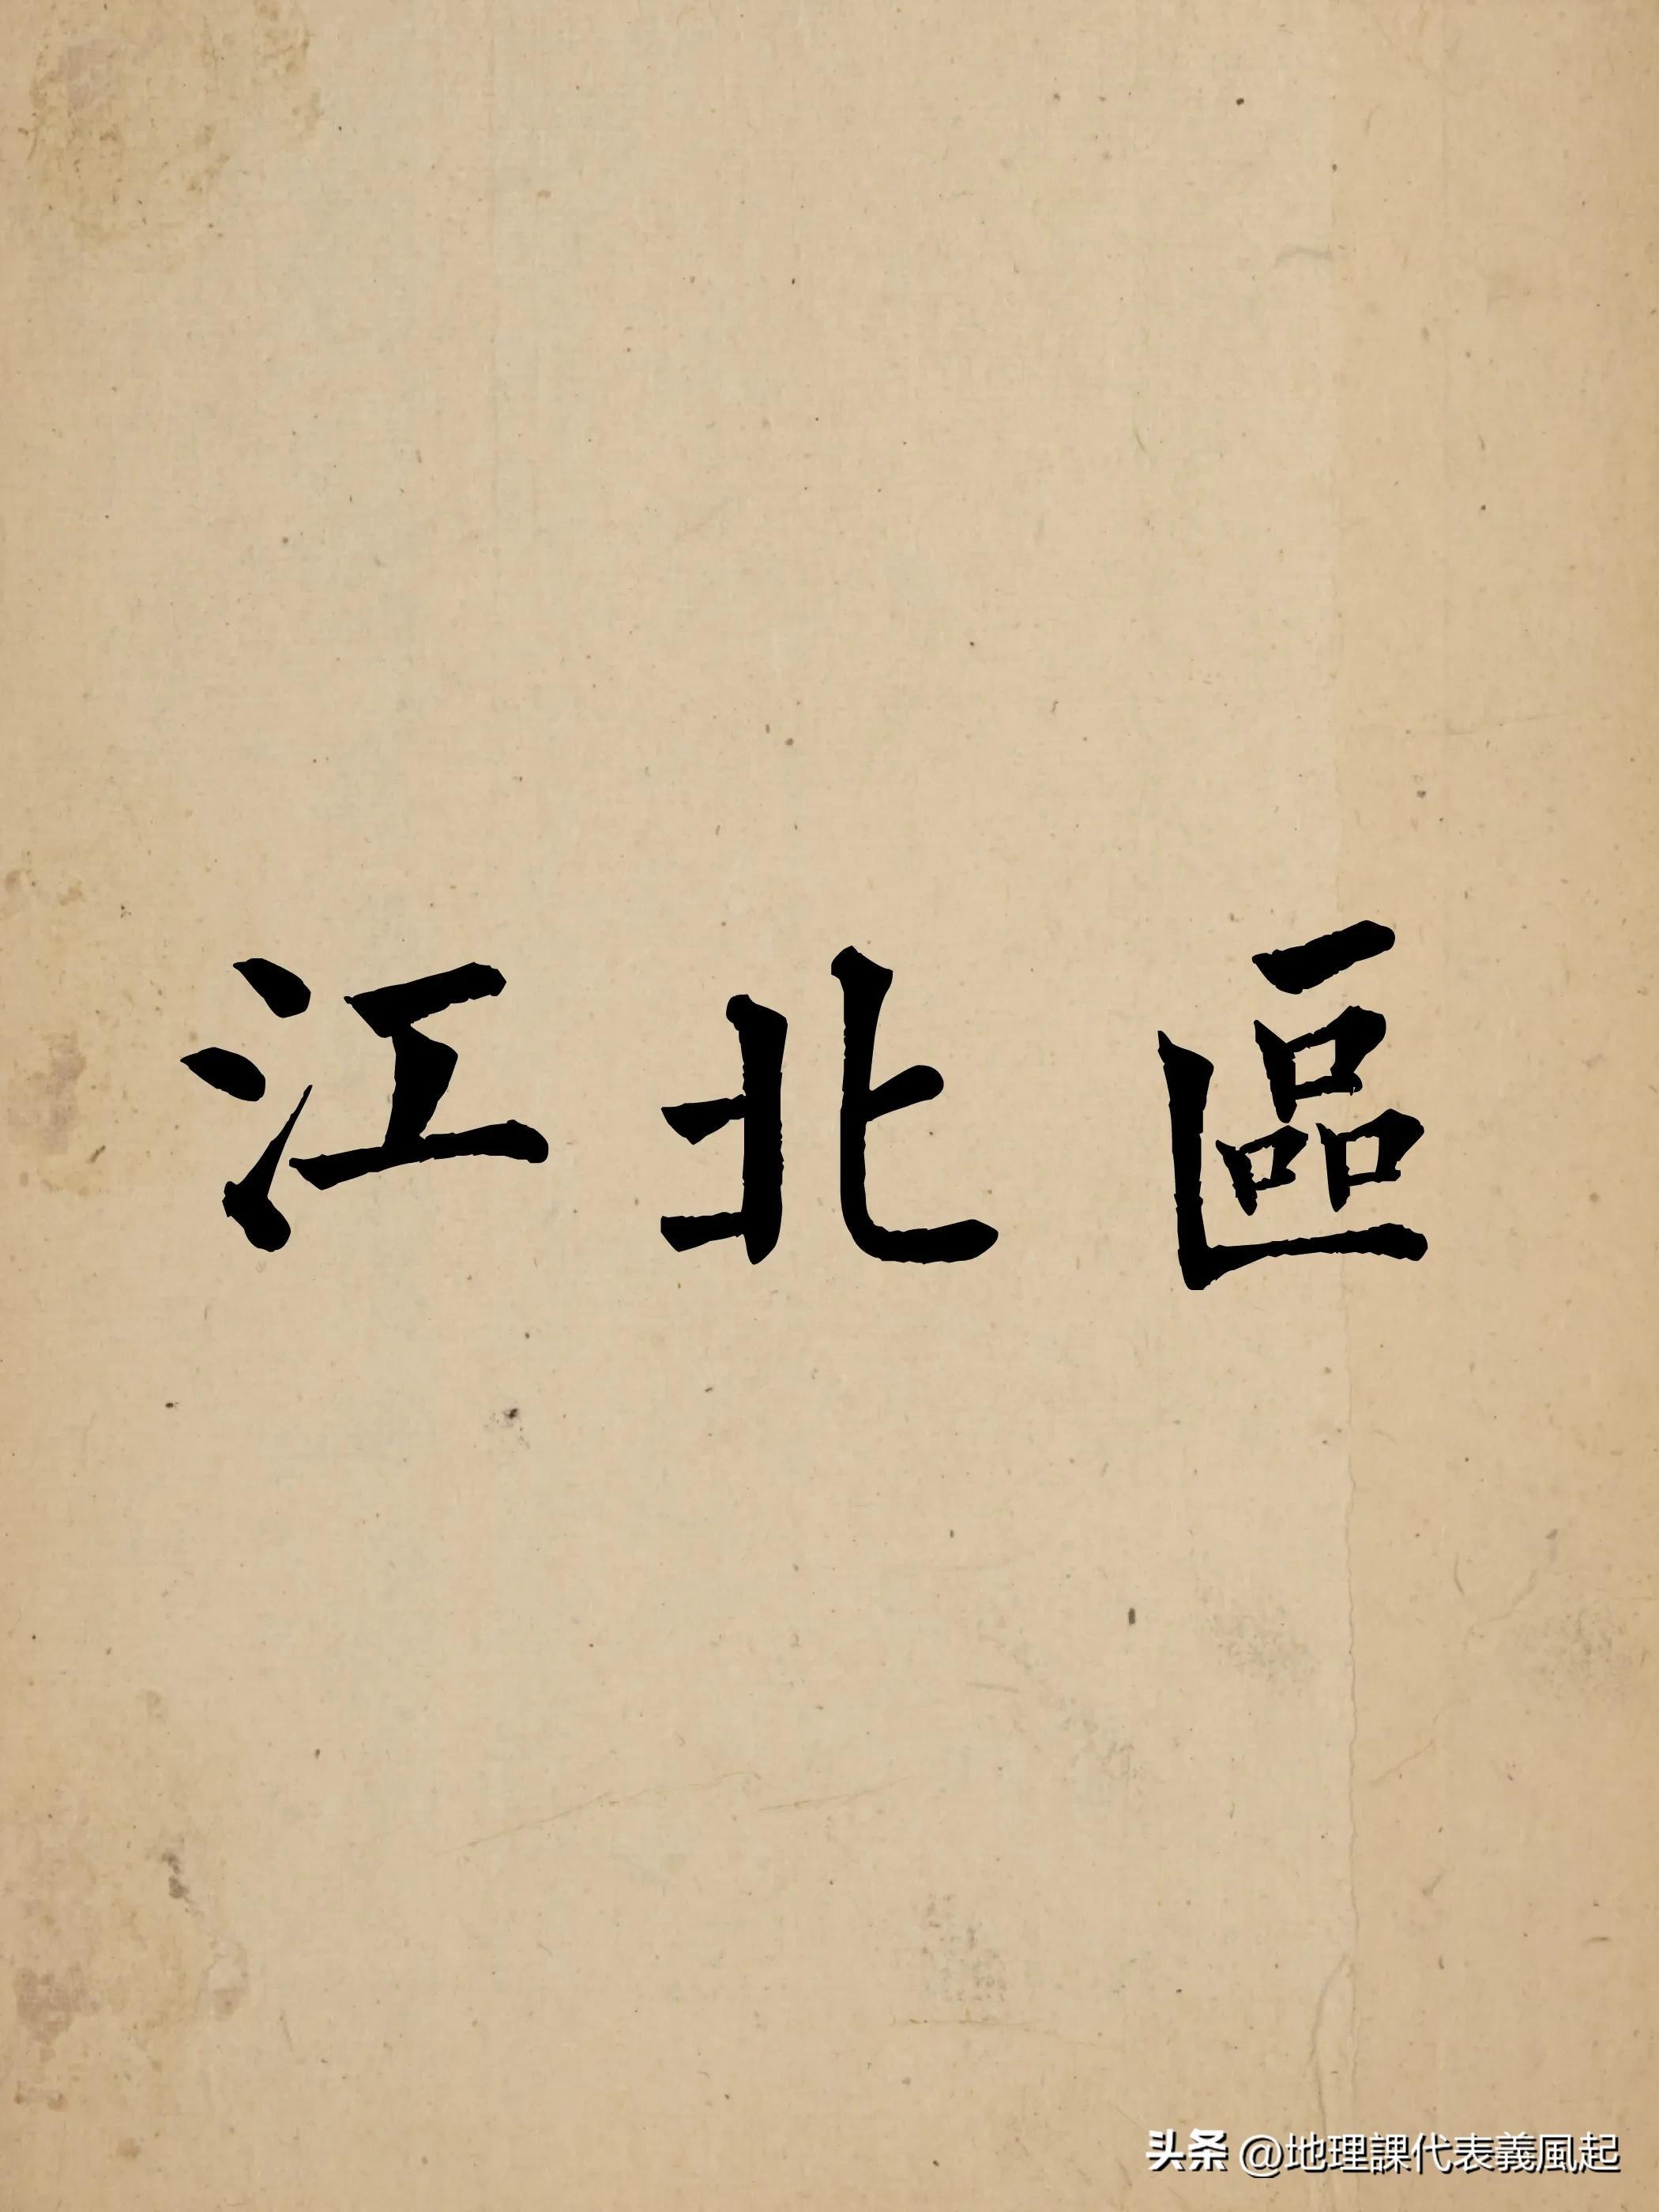 江北區
头条 @地理課代表義風起